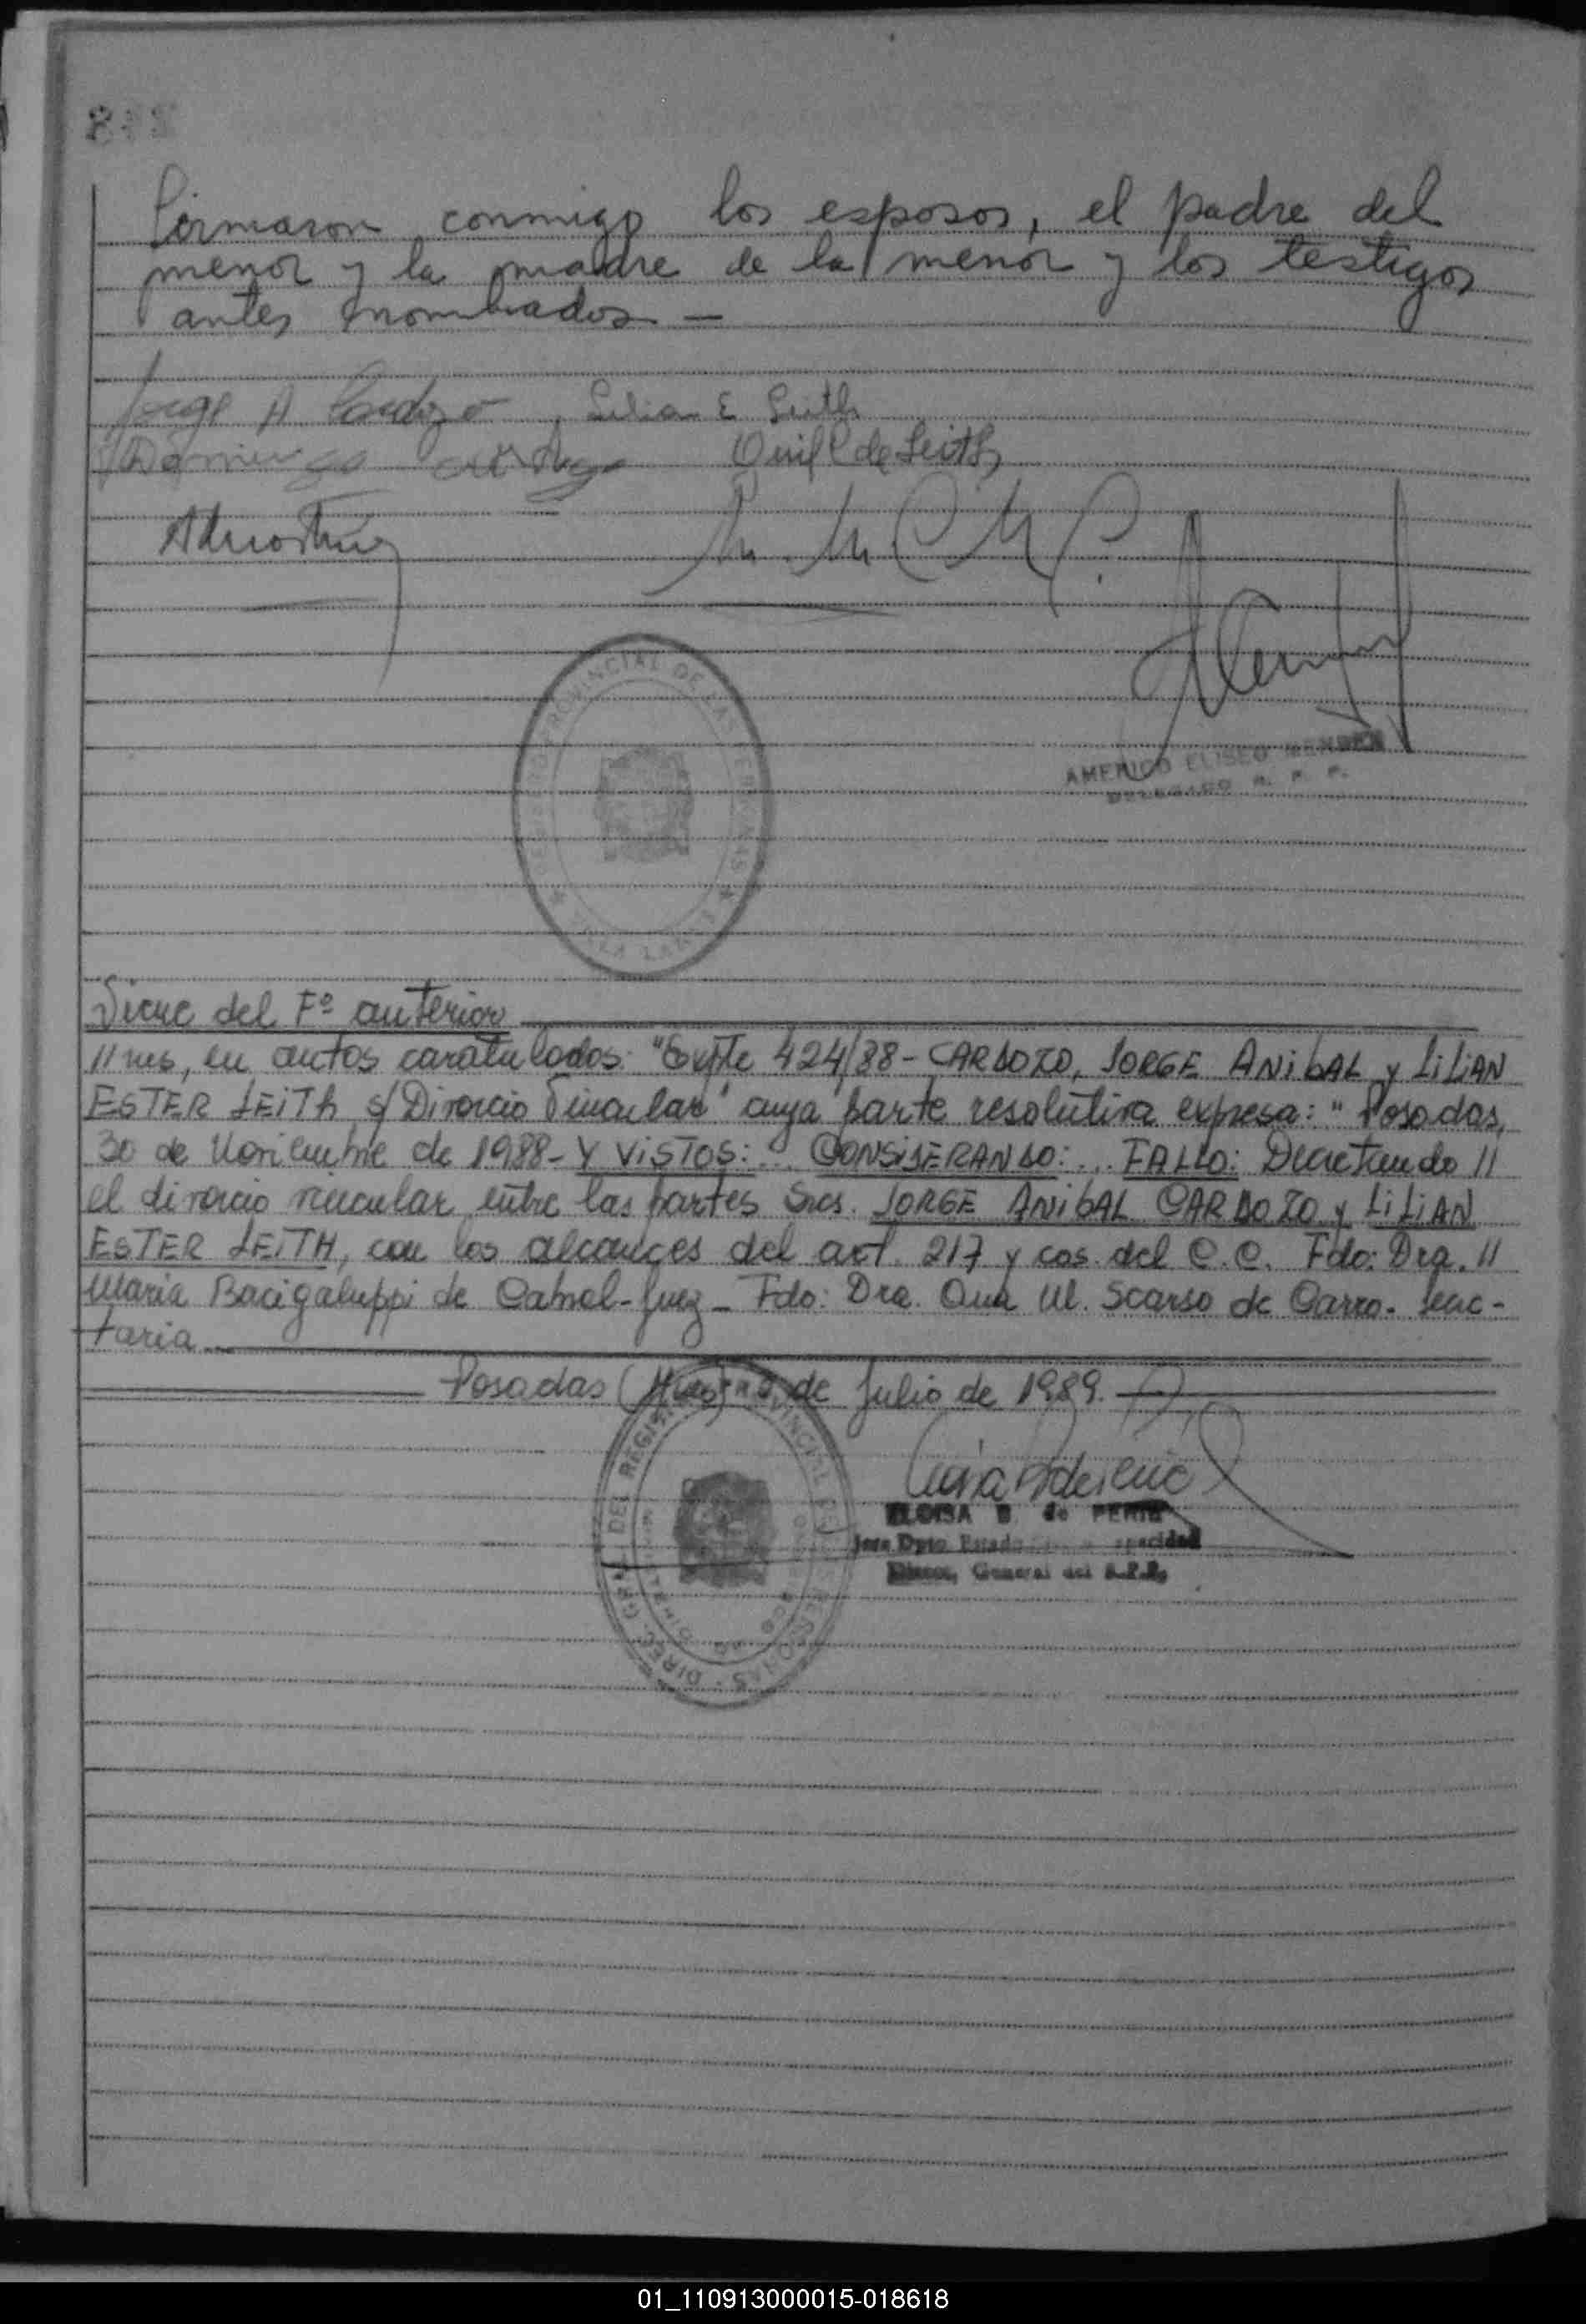 firmaron conmigo los esposos, el padre del
menor y la madre de la menor y los testigos
antes nombrados —
Jorge A Cardozo Lilian E Leith
Domingo de Leith
PROVINCIAL DE LAS PERSONAS
AMERICO ELISEO
DELEGADO R. P. P.
Sigue del Fº anterior
//nes, en autos caratulados: "Expte 424/88 - CARDOZO, JORGE ANIBAL y LILIAN
ESTER LEITH s/ Divorcio Vincular" cuya parte resolutiva expresa: "Posadas,
30 de Noviembre de 1988 - Y VISTOS: ... CONSIDERANDO: ... FALLO: Decretando //
el divorcio vincular entre las partes Sres. JORGE ANIBAL CARDOZO y LILIAN
ESTER LEITH, con los alcances del art. 217 y cos. del C.C. Fdo: Dra. //
Maria Bacigaluppi de Cabral - Juez - Fdo: Dra. Ana M. Scarso de Carro - Secre-
taria
Posadas de Julio de 1989.
ELOISA B. de
Dpto. Estado
General del R.P.P.
DIREC. GRAL. DEL REGISTRO PROVINCIAL DE LAS PERSONAS
01_110913000015-018618